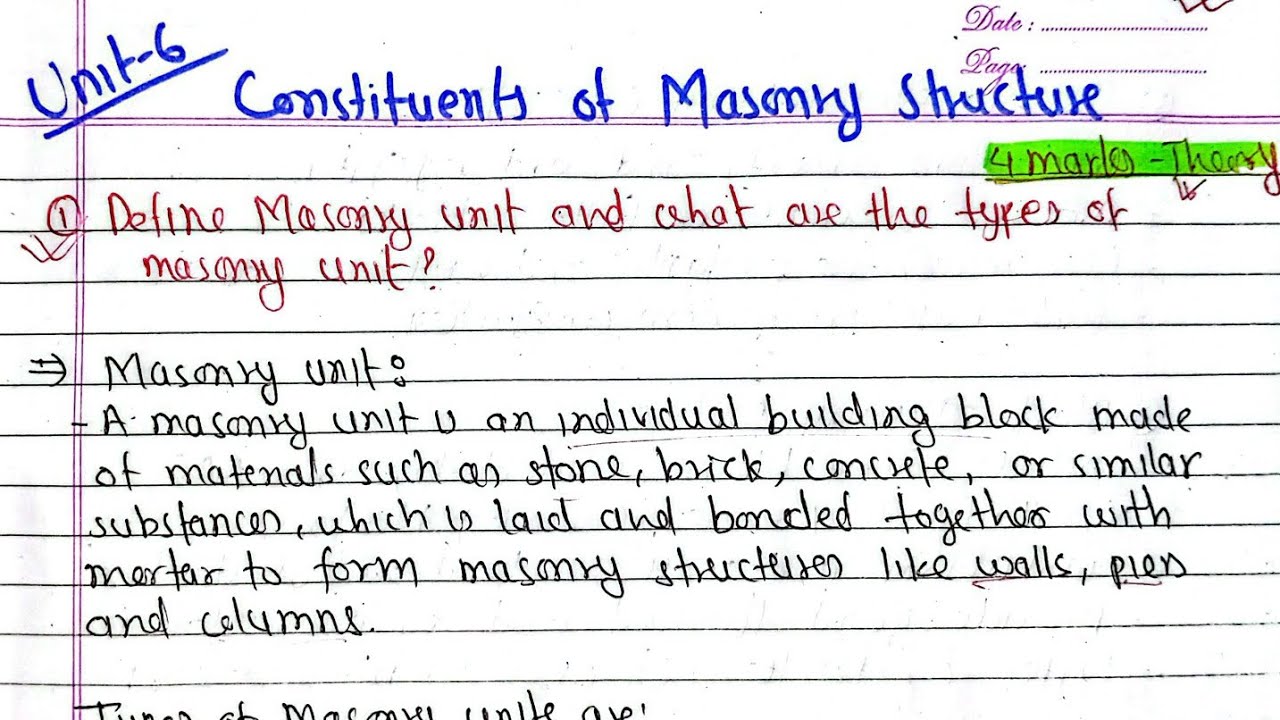 Date : ..........................
Page: ..........................
Unit-6
Constituents of Masonry Structure
4 marks - Theory
① Define Masonry unit and what are the types of
masonry unit?
⇒ Masonry unit:
- A masonry unit is an individual building block made
of materials such as stone, brick, concrete, or similar
substances, which is laid and bonded together with
mortar to form masonry structures like walls, piers
and columns.
Types of Masonry units are: